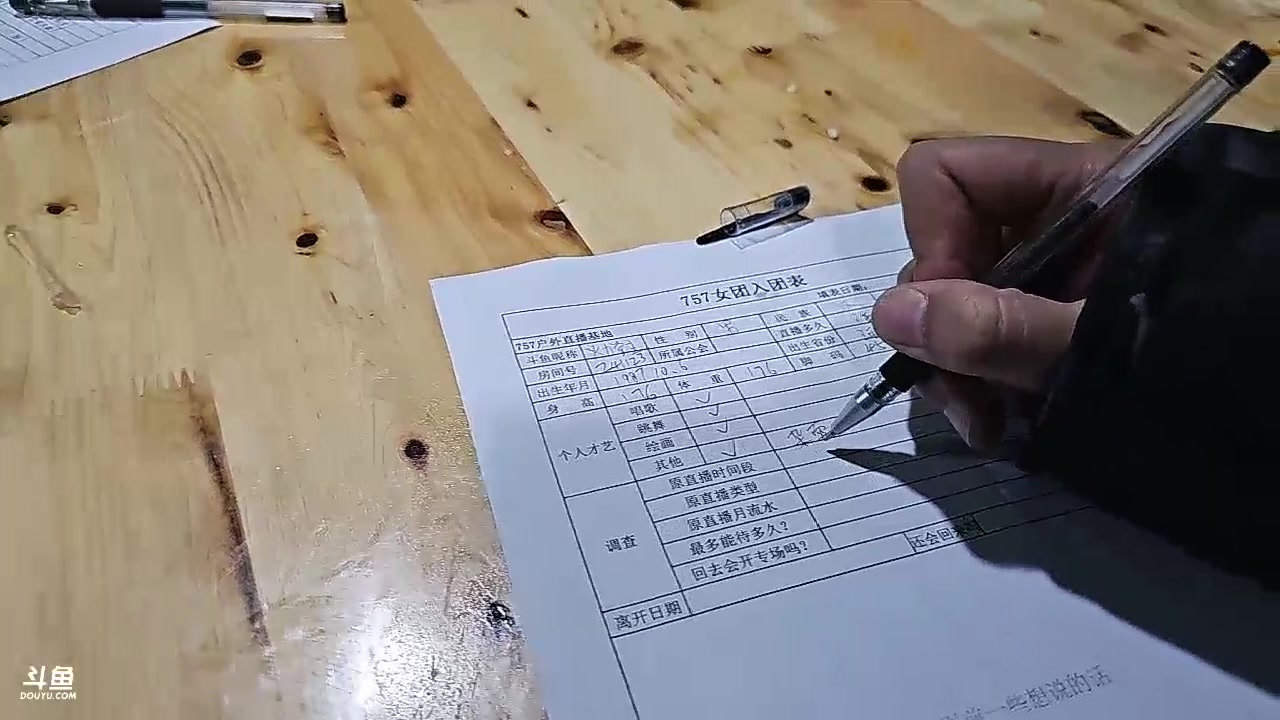 757女团入团表
757户外直播基地 填表日期:
斗鱼昵称 性别 民族
房间号 241123 所属公会 直播多久
出生年月 1987.10.6 出生省份
身高 176 体重 176 脚码
个人才艺
唱歌 ✓
跳舞 ✓
绘画 ✓
其他 ✓
调查
原直播时间段
原直播类型
原直播月流水
最多能待多久?
回去会开专场吗? 还会回来
离开日期
一些想说的话
斗鱼
DOUYU.COM